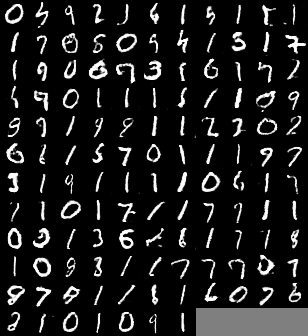 0 5 9 2 1 6 1 5 1 1
1 7 0 8 0 9 4 1 3 1 7
1 9 0 6 7 3 1 6 1 7 2
4 4 0 1 1 1 5 1 0 9
9 7 1 9 9 1 1 2 2 0 2
6 6 1 5 7 0 1 1 1 9 7
3 1 9 1 1 1 1 0 6 1 7
7 1 0 1 7 1 1 7 7 1 1
0 0 1 3 6 8 1 7 1 8
1 0 8 3 1 1 7 7 7 0 7
9 7 8 1 1 8 1 6 0 7 6
2 1 0 1 0 9 1